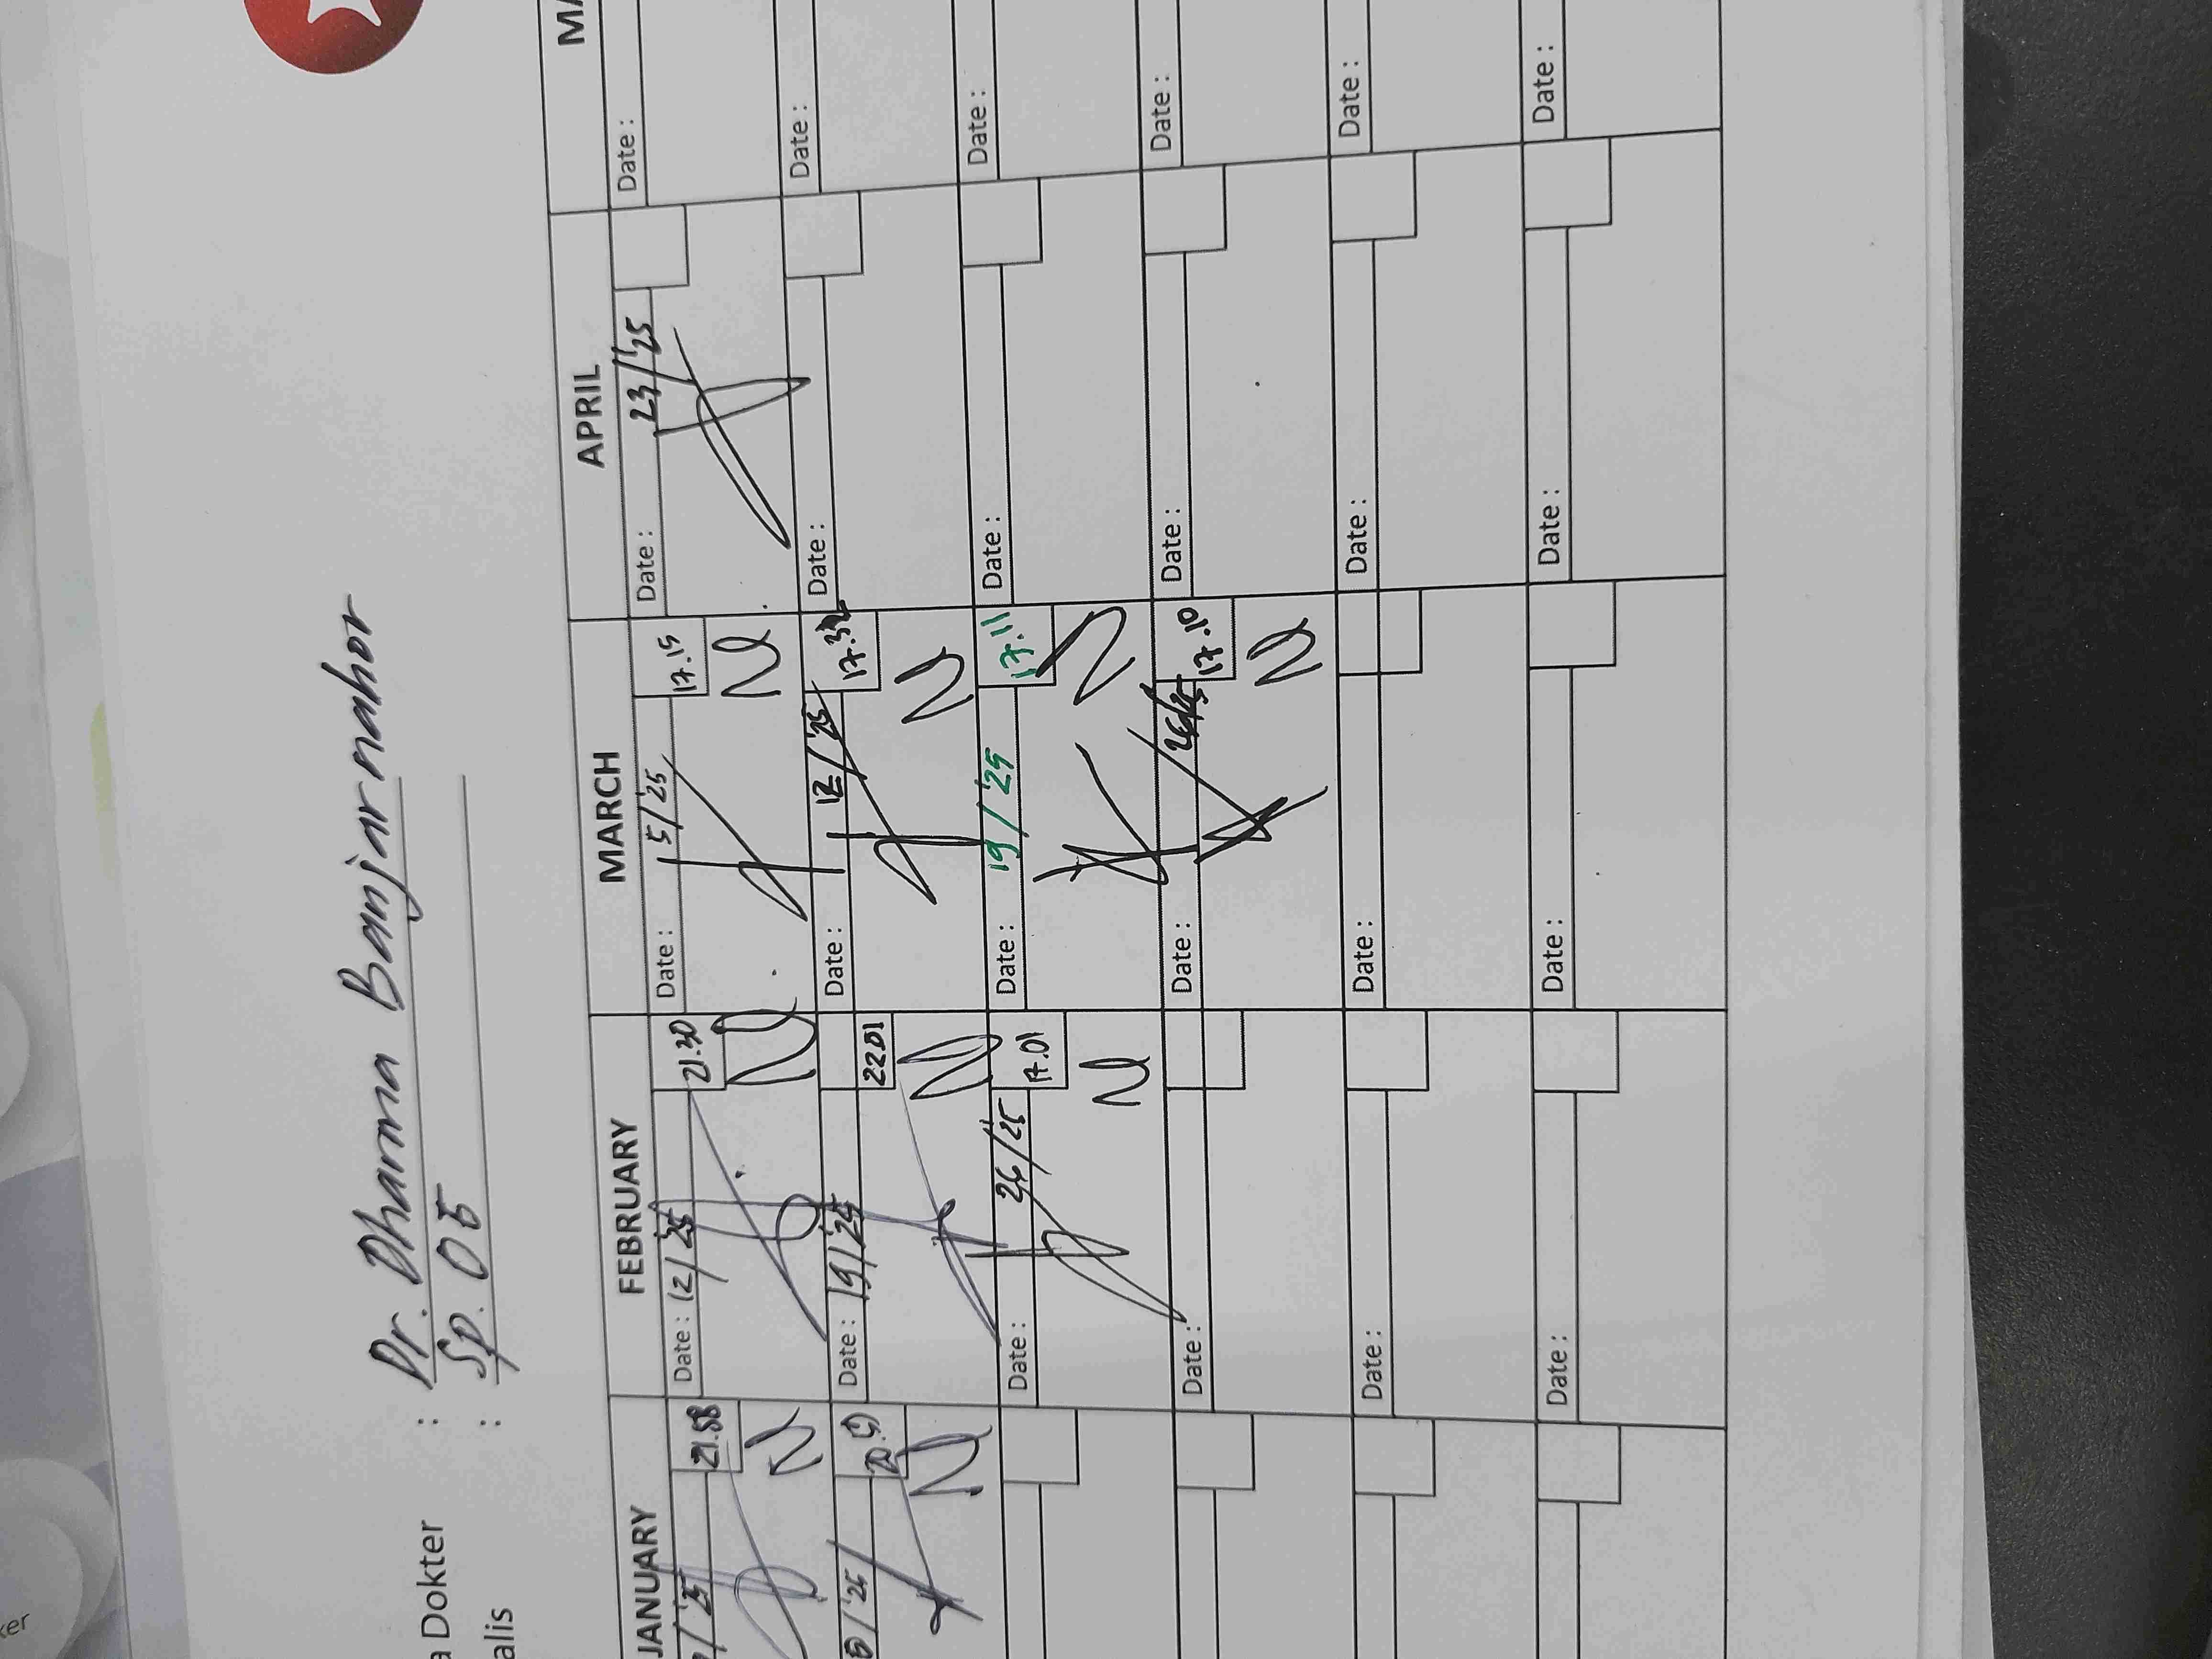 a Dokter : Dr. Dharma Banjarnahor
alis : Sp. OT
JANUARY FEBRUARY MARCH APRIL MA
/'25 21.58 Date : 12/'25 21.30 Date : 5/'25 17.15 Date : 23/'25 Date :
N N N
/'25 Date : 19/'25 22.01 Date : 12/'25 Date : Date :
N N N
Date : 26/'25 17.01 Date : 19/'25 17.11 Date : Date :
N N
Date : Date : 26/25 17.10 Date : Date :
N
Date : Date : Date : Date :
Date : Date : Date : Date :